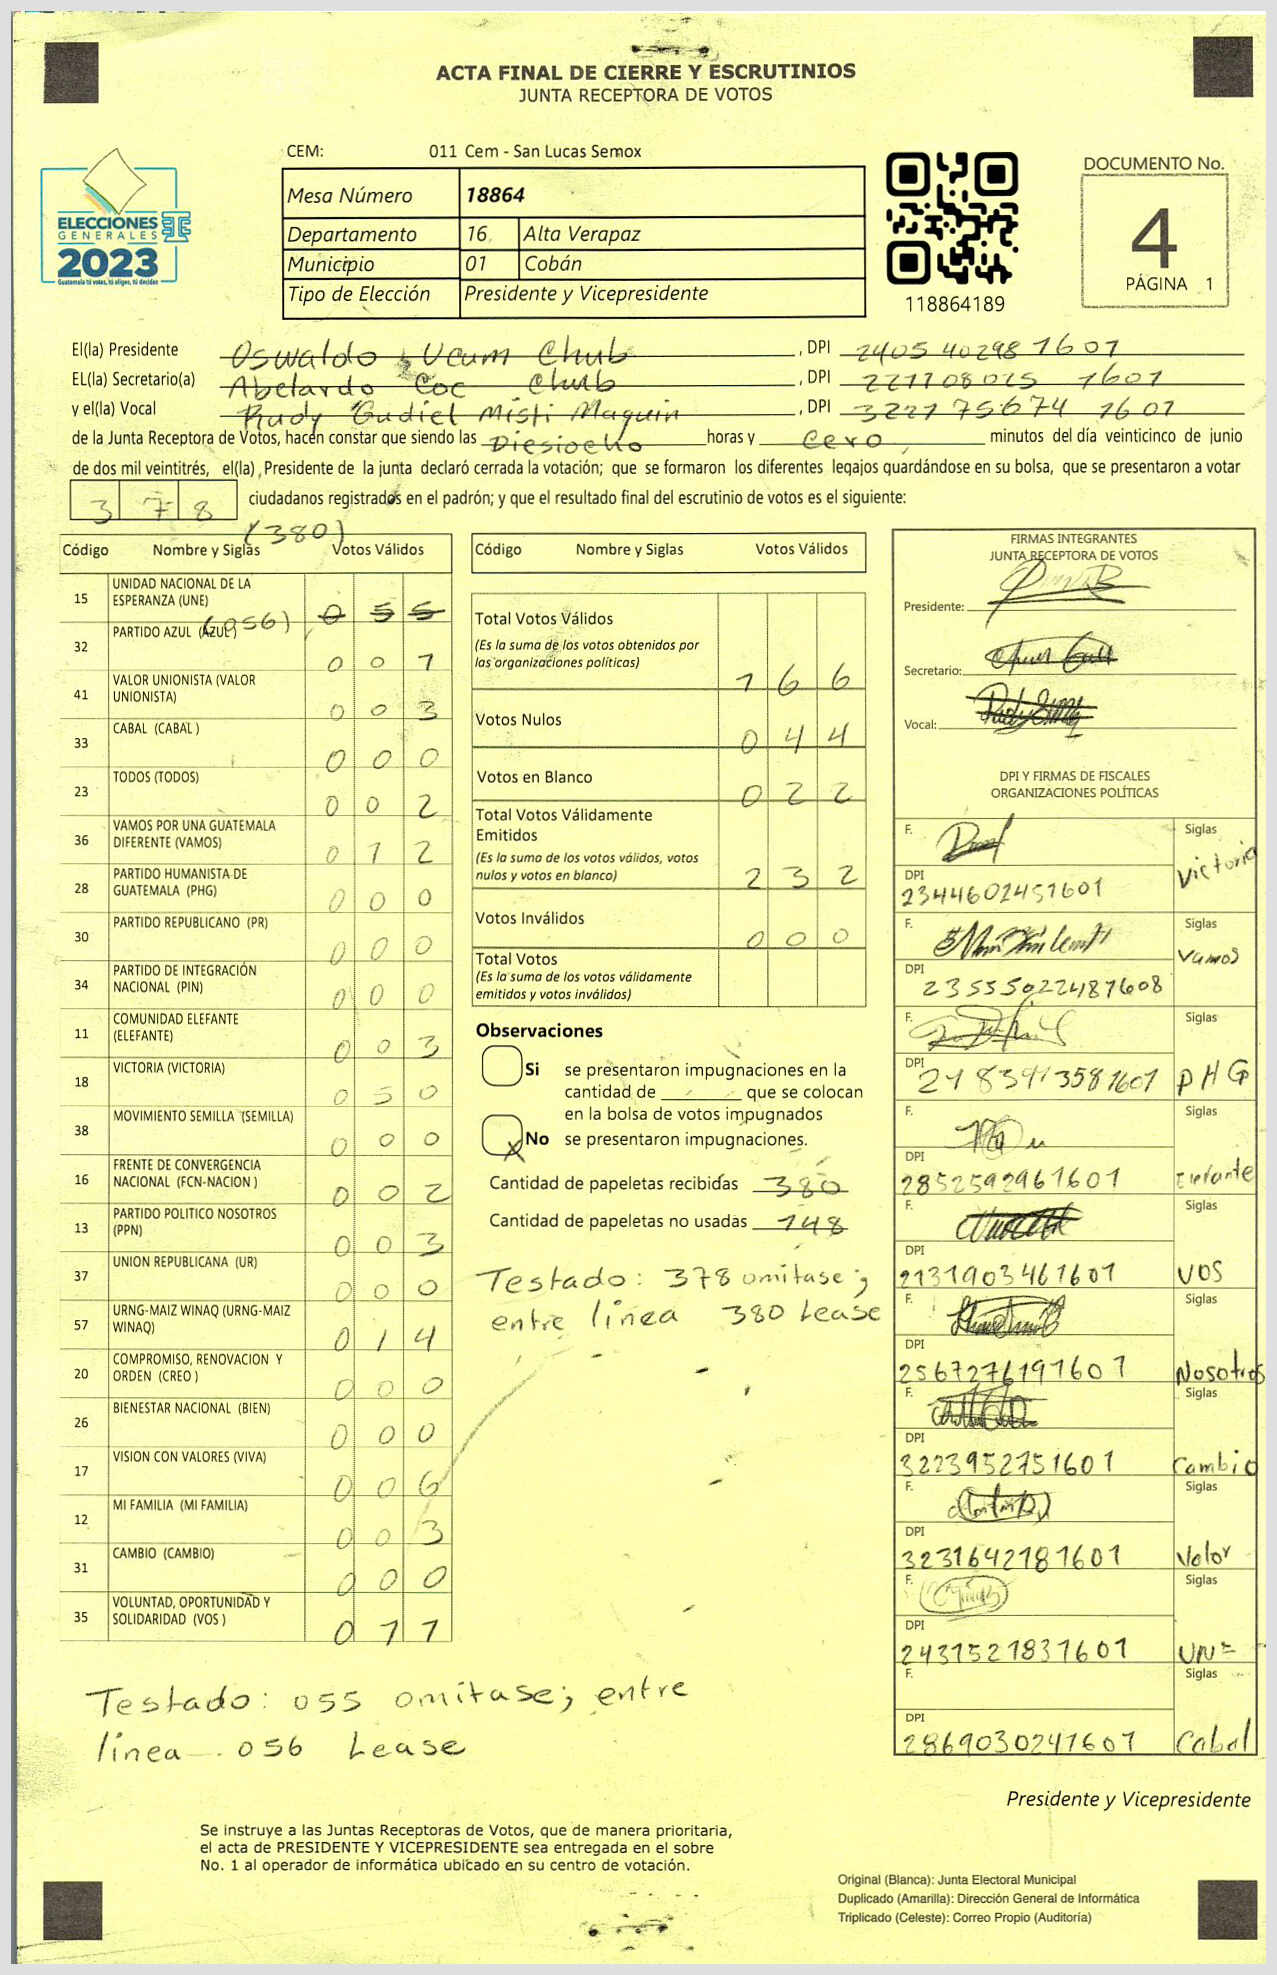 ACTA FINAL DE CIERRE Y ESCRUTINIOS
JUNTA RECEPTORA DE VOTOS
CEM: 011 Cem - San Lucas Semox
Mesa Número 18864
Departamento 16 Alta Verapaz
Municipio 01 Cobán
Tipo de Elección Presidente y Vicepresidente
ELECCIONES
GENERALES
TSE
2023
Guatemala tú votas, tú eliges, tú decides
118864189
DOCUMENTO No.
4
PÁGINA 1
El(la) Presidente Oswaldo Ucum Chub, DPI 2405 40298 1601
EL(la) Secretario(a) Abelardo Coc Chub, DPI 227708025 1601
y el(la) Vocal Rudy Gudiel Misti Maquin, DPI 3221 75674 1601
de la Junta Receptora de Votos, hacen constar que siendo las Diesiocho horas y cero minutos del día veinticinco de junio
de dos mil veintitrés, el(la) Presidente de la junta declaró cerrada la votación; que se formaron los diferentes legajos guardándose en su bolsa, que se presentaron a votar
3 7 8 ciudadanos registrados en el padrón; y que el resultado final del escrutinio de votos es el siguiente:
(380)
Código Nombre y Siglas Votos Válidos
15 UNIDAD NACIONAL DE LA ESPERANZA (UNE) 0 5 5
(056)
32 PARTIDO AZUL (AZUL) 0 0 1
41 VALOR UNIONISTA (VALOR UNIONISTA) 0 0 3
33 CABAL (CABAL ) 0 0 0
23 TODOS (TODOS) 0 0 2
36 VAMOS POR UNA GUATEMALA DIFERENTE (VAMOS) 0 1 2
28 PARTIDO HUMANISTA DE GUATEMALA (PHG) 0 0 0
30 PARTIDO REPUBLICANO (PR) 0 0 0
34 PARTIDO DE INTEGRACIÓN NACIONAL (PIN) 0 0 0
11 COMUNIDAD ELEFANTE (ELEFANTE) 0 0 3
18 VICTORIA (VICTORIA) 0 5 0
38 MOVIMIENTO SEMILLA (SEMILLA) 0 0 0
16 FRENTE DE CONVERGENCIA NACIONAL (FCN-NACION ) 0 0 2
13 PARTIDO POLITICO NOSOTROS (PPN) 0 0 3
37 UNION REPUBLICANA (UR) 0 0 0
57 URNG-MAIZ WINAQ (URNG-MAIZ WINAQ) 0 1 4
20 COMPROMISO, RENOVACION Y ORDEN (CREO ) 0 0 0
26 BIENESTAR NACIONAL (BIEN) 0 0 0
17 VISION CON VALORES (VIVA) 0 0 6
12 MI FAMILIA (MI FAMILIA) 0 0 3
31 CAMBIO (CAMBIO) 0 0 0
35 VOLUNTAD, OPORTUNIDAD Y SOLIDARIDAD (VOS ) 0 1 1
Testado: 055 omitase; entre
linea 056 Lease
Código Nombre y Siglas Votos Válidos
Total Votos Válidos
(Es la suma de los votos obtenidos por
las organizaciones políticas) 1 6 6
Votos Nulos 0 4 4
Votos en Blanco 0 2 2
Total Votos Válidamente
Emitidos
(Es la suma de los votos válidos, votos
nulos y votos en blanco) 2 3 2
Votos Inválidos 0 0 0
Total Votos
(Es la suma de los votos válidamente
emitidos y votos inválidos)
Observaciones
Si se presentaron impugnaciones en la
cantidad de ____ que se colocan
en la bolsa de votos impugnados
X No se presentaron impugnaciones.
Cantidad de papeletas recibidas 380
Cantidad de papeletas no usadas 148
Testado: 378 omitase;
entre linea 380 Lease
FIRMAS INTEGRANTES
JUNTA RECEPTORA DE VOTOS
Presidente:
Secretario:
Vocal:
DPI Y FIRMAS DE FISCALES
ORGANIZACIONES POLÍTICAS
F. Siglas Victoria
DPI 2344602451601
F. Siglas Vamos
DPI 2355502248 71608
F. Siglas PHG
DPI 2183913581601
F. Siglas
DPI 2852592961601
F. Siglas VOS
DPI 2131903461601
F. Siglas Nosotros
DPI 2567276191601
F. Siglas Cambio
DPI 3223952751601
F. Siglas Valor
DPI 3231642181601
F. Siglas UNE
DPI 2431521831601
F. Siglas Cabal
DPI 2869030241601
Presidente y Vicepresidente
Se instruye a las Juntas Receptoras de Votos, que de manera prioritaria,
el acta de PRESIDENTE Y VICEPRESIDENTE sea entregada en el sobre
No. 1 al operador de informática ubicado en su centro de votación.
Original (Blanca): Junta Electoral Municipal
Duplicado (Amarilla): Dirección General de Informática
Triplicado (Celeste): Correo Propio (Auditoría)